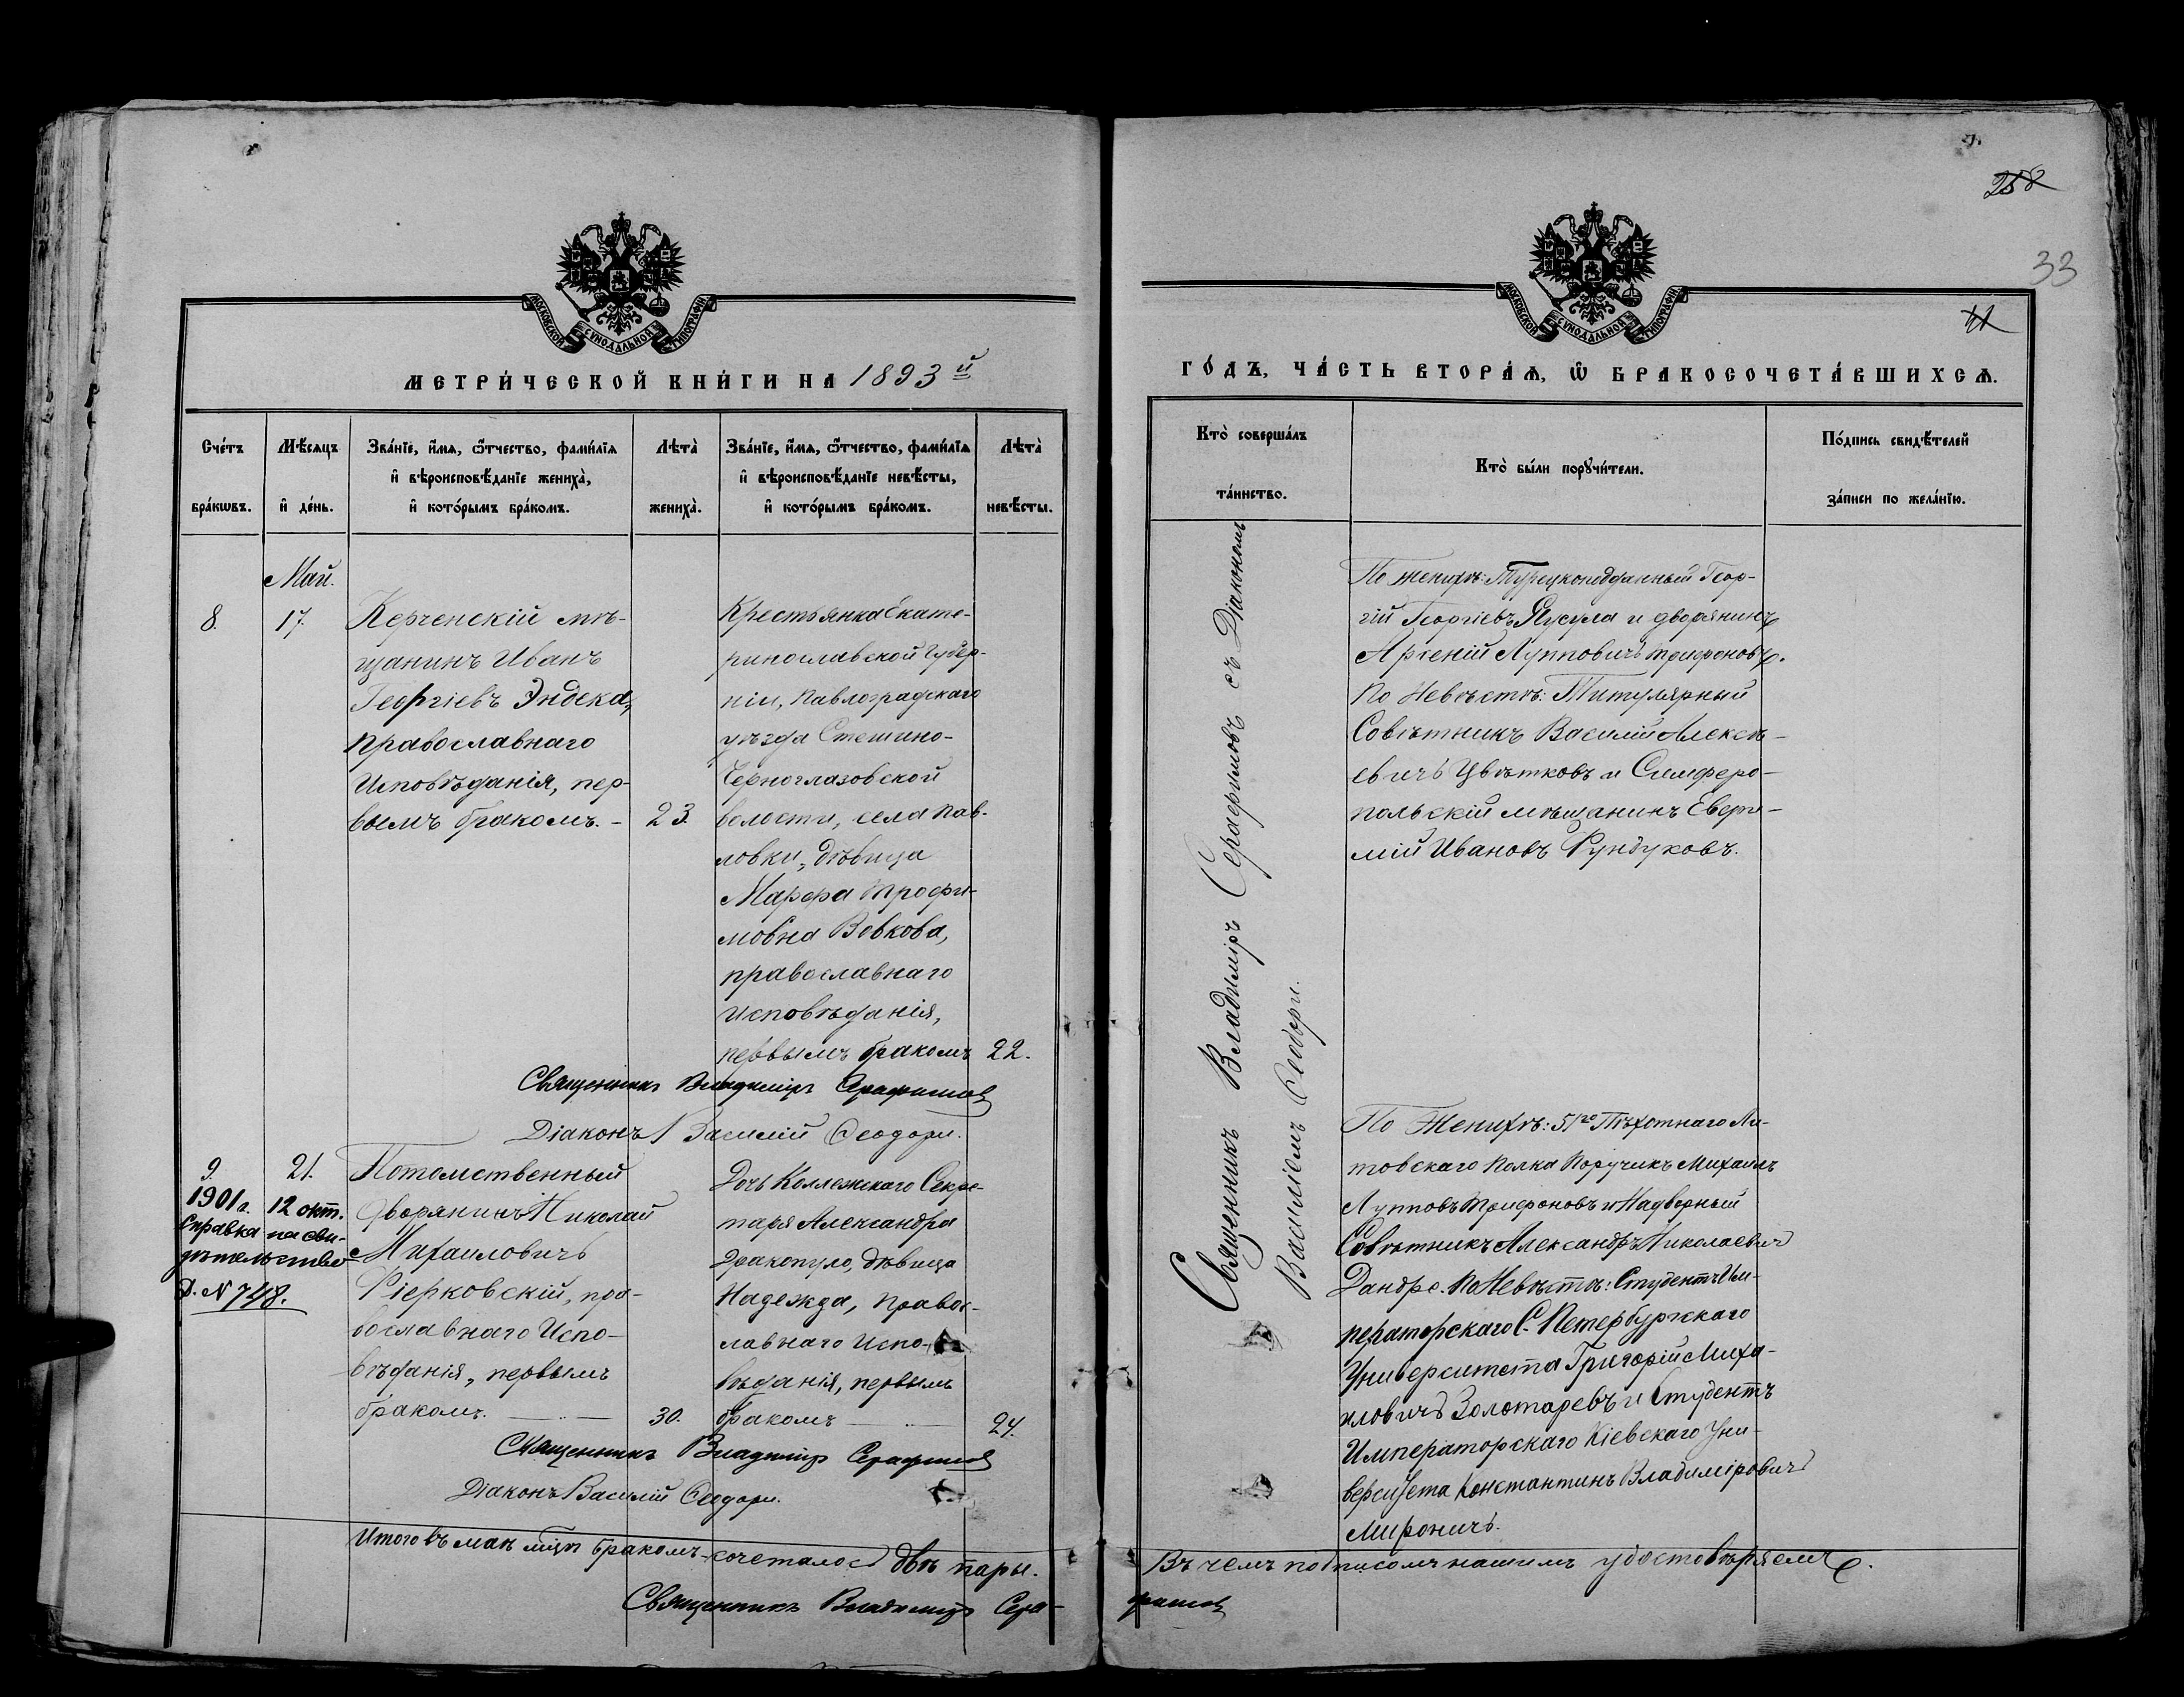 258
33
41
МОСКОВСКОЙ СѴНОДАЛЬНОЙ ТИПОГРАФІИ
МЕТРИ́ЧЕСКОЙ КНИ́ГИ НА 1893й
Сче́тъ бра́кѡвъ.
Мѣ́сяцъ и҆ де́нь.
Зва́нїе, и҆́мѧ, ѻ҆́тчество, фами́лїѧ
и҆ вѣроисповѣ́данїе жениха̀,
и҆ кото́рымъ бра́комъ.
Лѣта̀ жениха̀.
Зва́нїе, и҆́мѧ, ѻ҆́тчество, фами́лїѧ
и҆ вѣроисповѣ́данїе невѣ́сты,
и҆ кото́рымъ бра́комъ.
Лѣта̀ невѣ́сты.
Май.
8. 17.
Керченскій мѣ-
щанинъ Иванъ
Георгіевъ Эндека,
православнаго
Исповѣданія, пер-
вымъ бракомъ. –
23.
Крестьянка Екате-
ринославской Губер-
ніи, Павлоградскаго
уѣзда Стешино-
Черноглазовской
волости, села Пав-
ловки, дѣвица
Марфа Трофи-
мовна Вовкова,
православнаго
исповѣданія,
первымъ бракомъ
22.
Священникъ Владиміръ Серафимовъ
Діаконъ Василій Ѳеодори.
9. 21.
1901 г. 12 окт.
Справка на сви-
дѣтельство
Д. № 748.
Потомственный
дворянинъ Николай
Михаиловичъ
Фіерковскій, пра-
вославнаго Испо-
вѣданія, первымъ
бракомъ.
30.
Дочь Коллежскаго Секре-
таря Александра
Дракопуло, дѣвица
Надежда, правос-
лавнаго испо-
вѣданія, первымъ
бракомъ
24.
Священникъ Владиміръ Серафимовъ
Діаконъ Василій Ѳеодори.
Итого въ маѣ мѣсцѣ бракомъ сочеталось двѣ пары.
Священникъ Владиміръ Сера-
МОСКОВСКОЙ СѴНОДАЛЬНОЙ ТИПОГРАФІИ
ГО́ДЪ, ЧА́СТЬ ВТОРА́Ѧ, Ѽ БРАКОСОЧЕТА́ВШИХСѦ.
Кто̀ соверша́лъ та́инство.
Кто̀ бы́ли порꙋчи́тели.
По́дпись свидѣ́телей за́писи по жела́нїю.
Священникъ Владиміръ Серафимовъ съ Діакономъ
Василіемъ Ѳеодори.
По женихѣ: Турецкоподданный Геор-
гій Георгіевъ Кусула и дворянинъ
Арсеній Лупповичъ Трифоновъ.
По Невѣстѣ: Титулярный
Совѣтникъ Василій Алексѣ-
евичъ Цвѣтковъ и Симферо-
польскій мѣщанинъ Евфи-
мій Ивановъ Рундуковъ.
По Женихѣ: 51го Пѣхотнаго Ли-
товскаго Полка Поручикъ Михаилъ
Лупповъ Трифоновъ и Надворный
Совѣтникъ Александръ Николаевичъ
Дандре. По Невѣстѣ: Студентъ Им-
ператорскаго С. Петербургскаго
Университета Григорій Миха-
иловичъ Золотаревъ и Студентъ
Императорскаго Кіевскаго Уни-
верситета Константинъ Владиміровичъ
Мироничъ.
Въ чемъ подписомъ нашимъ удостовѣряемъ.
фимовъ